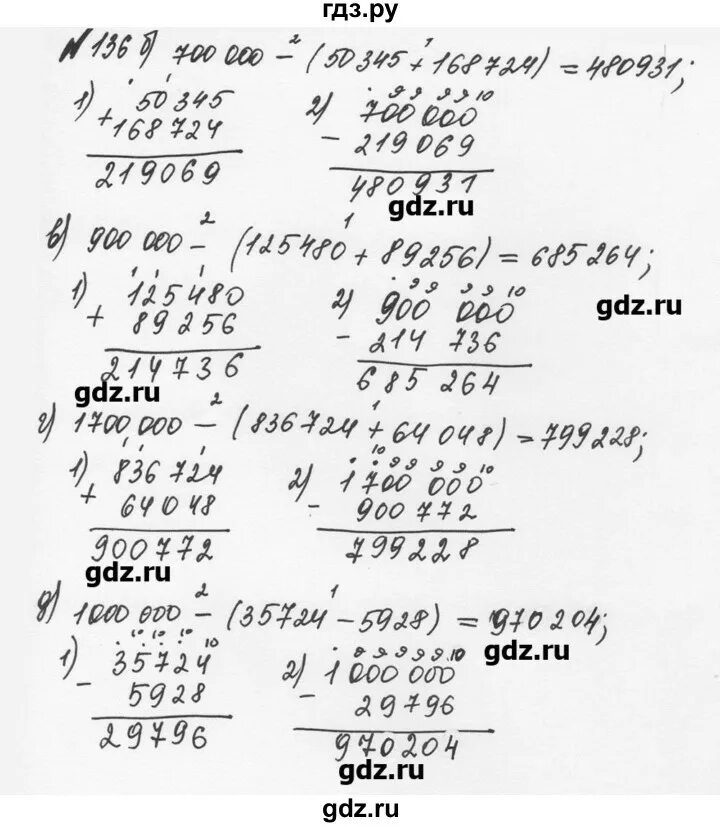 гдз.ру
№136 б) 700 000 − (50 345 + 168 724) = 480931;
1) 50345 + 168724 = 219069
2) 700 000 − 219069 = 480931
gdz.ru
в) 900 000 − (125480 + 89256) = 685264;
1) 125480 + 89256 = 214736
2) 900 000 − 214 736 = 685 264
gdz.ru
gdz.ru
г) 1700 000 − (836 724 + 64 048) = 799228;
1) 836 724 + 64048 = 900772
2) 1700 000 − 900 772 = 799228
gdz.ru
д) 1000 000 − (35724 − 5928) = 970204;
1) 35724 − 5928 = 29796
2) 1 000 000 − 29796 = 970204
gdz.ru
gdz.ru
gdz.ru